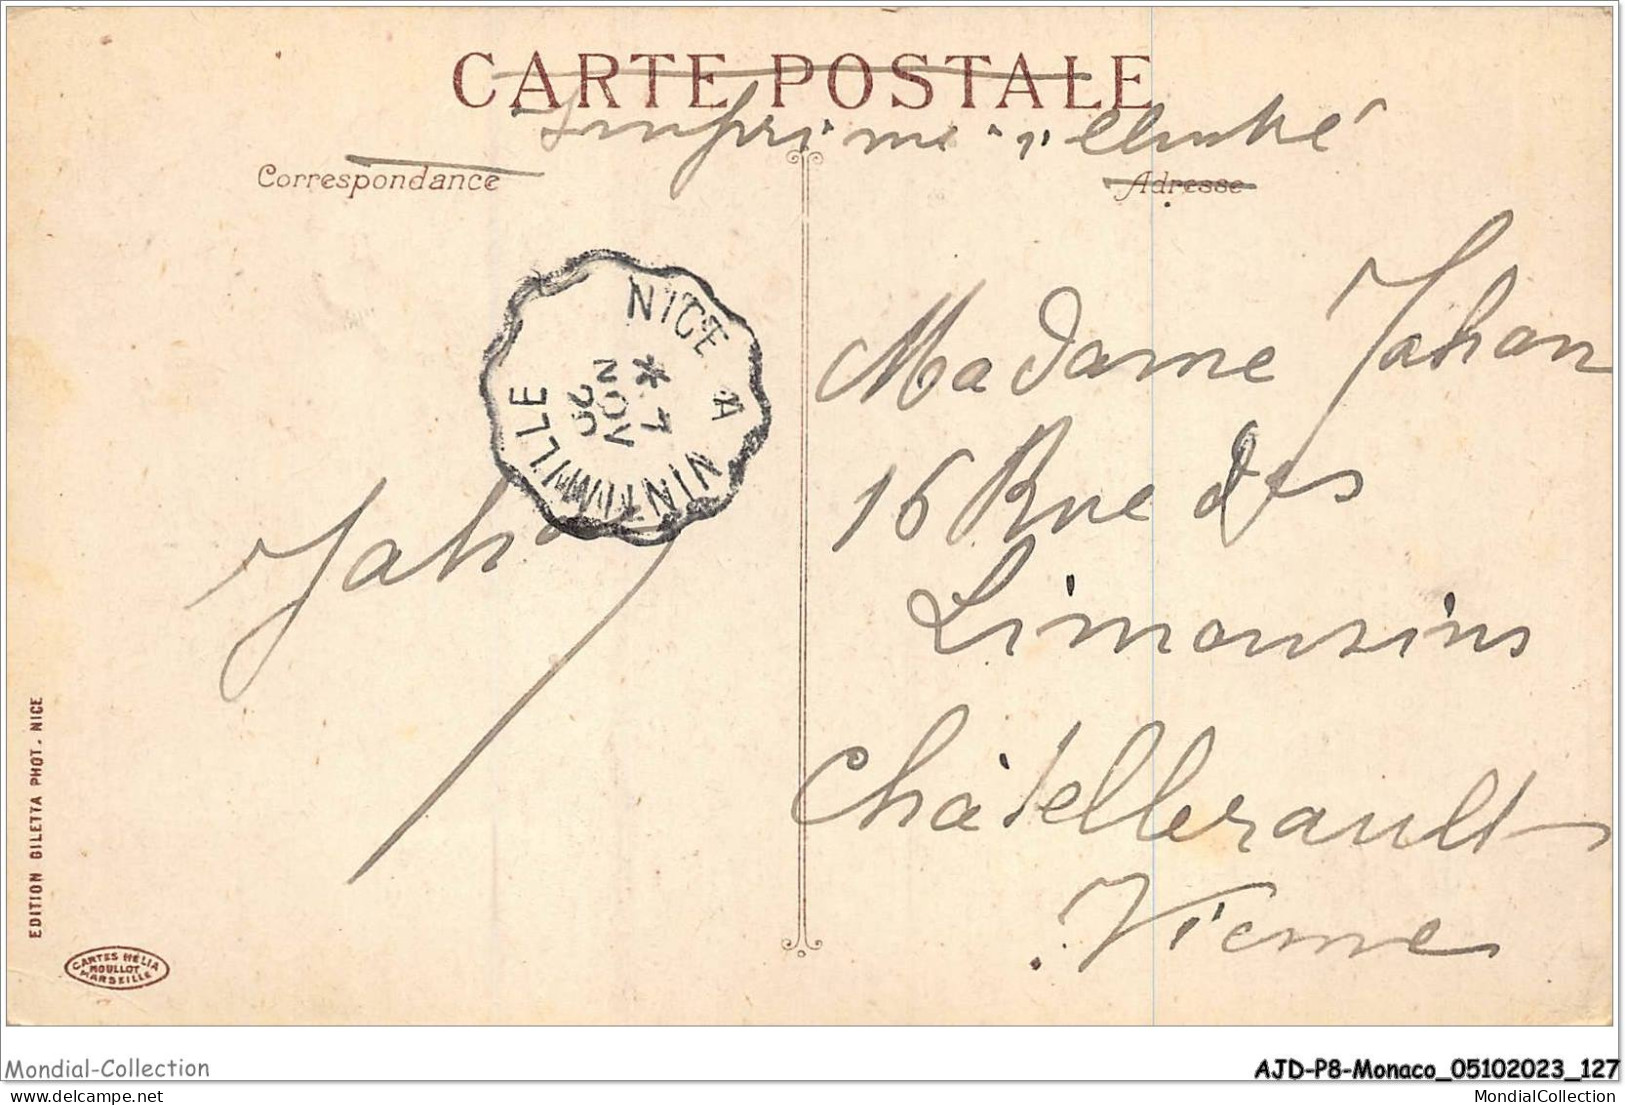 CARTE POSTALE
Imprimé illustré
Correspondance
Adresse
NICE A VINTIMILLE
* 7
NOV
20
Madame Jahan
16 Rue des
Limousins
Châtellerault
Vienne
Jahan
EDITION GILETTA PHOT. NICE
CARTES HELIA
MOULLOT
MARSEILLE
Mondial-Collection
AJD-P8-Monaco_05102023_127
Mondial-Collection.com
MondialCollection